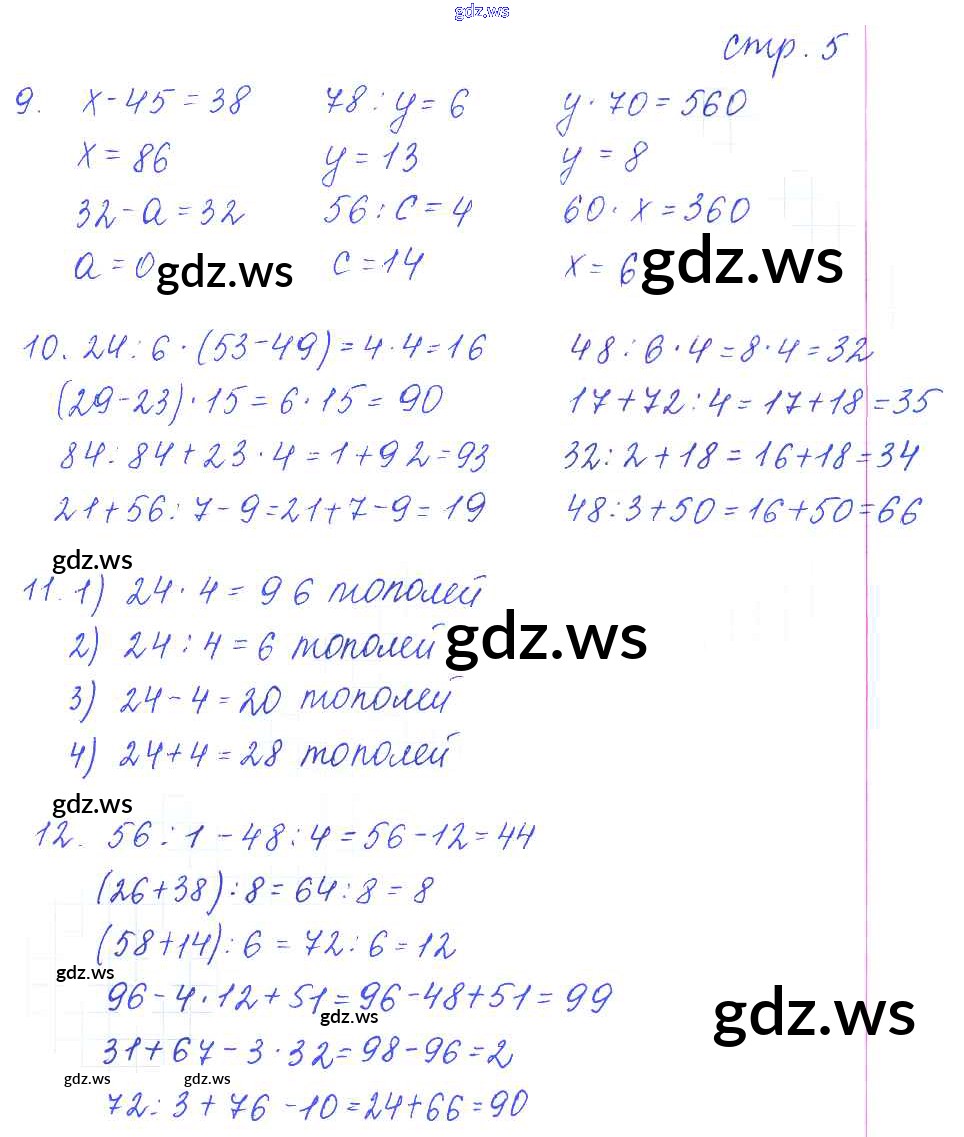 gdz.ws
стр. 5
9. x - 45 = 38 78 : y = 6 y · 70 = 560
x = 86 y = 13 y = 8
32 - a = 32 56 : c = 4 60 · x = 360
a = 0 c = 14 x = 6
gdz.ws gdz.ws
10. 24 : 6 · (53 - 49) = 4 · 4 = 16 48 : 6 · 4 = 8 · 4 = 32
(29 - 23) · 15 = 6 · 15 = 90 17 + 72 : 4 = 17 + 18 = 35
84 : 84 + 23 · 4 = 1 + 92 = 93 32 : 2 + 18 = 16 + 18 = 34
21 + 56 : 7 - 9 = 21 + 7 - 9 = 19 48 : 3 + 50 = 16 + 50 = 66
gdz.ws
11. 1) 24 · 4 = 96 тополей
2) 24 : 4 = 6 тополей gdz.ws
3) 24 - 4 = 20 тополей
4) 24 + 4 = 28 тополей
gdz.ws
12. 56 : 1 - 48 : 4 = 56 - 12 = 44
(26 + 38) : 8 = 64 : 8 = 8
(58 + 14) : 6 = 72 : 6 = 12
gdz.ws
96 - 4 · 12 + 51 = 96 - 48 + 51 = 99
gdz.ws gdz.ws
31 + 67 - 3 · 32 = 98 - 96 = 2
gdz.ws gdz.ws
72 : 3 + 76 - 10 = 24 + 66 = 90